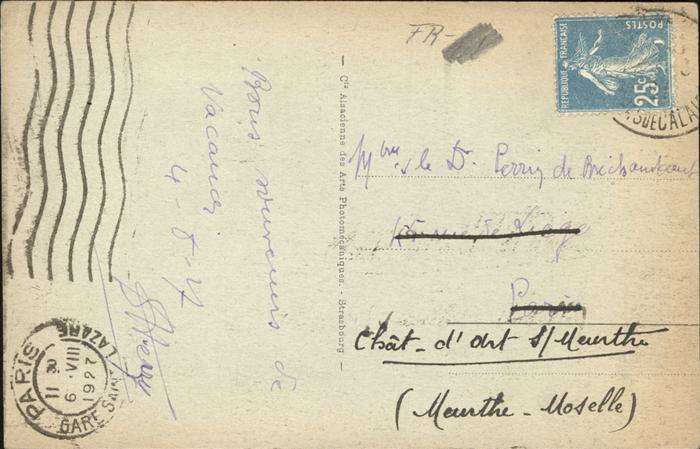 FR-
RÉPUBLIQUE FRANÇAISE
POSTES
25c
Bons souvenirs de
Vacances
4-8-27
Cie Alsacienne des Arts Photomécaniques. - Strasbourg
le Dr. Perrin de Brichambaut
Paris
Chât-d'Art S/Meurthe
(Meurthe-Moselle)
PARIS
11 30
6 VIII
1927
GARE SAINT LAZARE